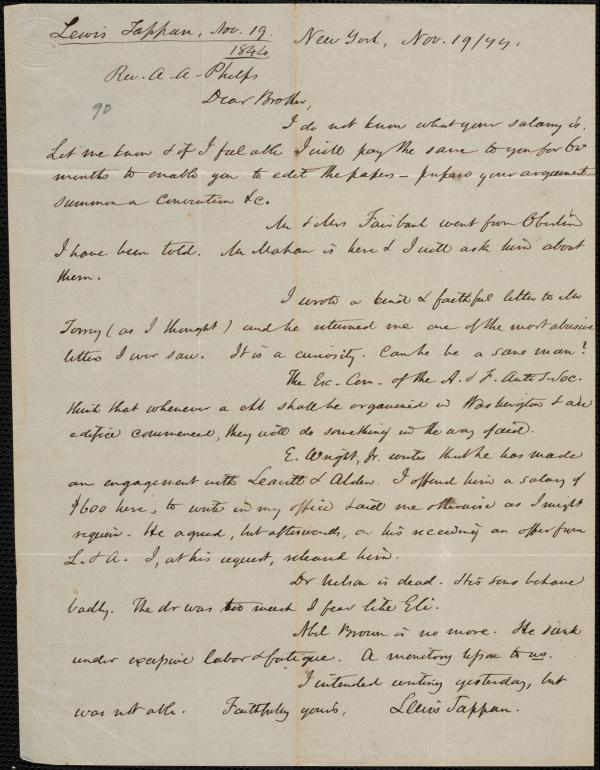 Lewis Tappan, Nov. 19.
1844
New York, Nov. 19/44.
Rev. A. A. Phelps
90
Dear Brother,
I do not know what your salary is.
Let me know & if I feel able I will pay the same to you for 6
months to enable you to edit the papers – prepare your argument –
summon a convention &c.
Mr & Mrs Fairbank went from Oberlin
I have been told. Mr Mahan is here & I will ask him about
them.
I wrote a kind & faithful letter to Mr
Torrey (as I thought) and he returned me one of the most abusive
letters I ever saw. It is a curiosity. Can he be a sane man?
The Ex. Com. of the A. & F. Anti S. Soc.
think that whenever a chh shall be organized in Washington & an
edifice commenced, they will do something in the way of aid.
E. Wright, Jr. writes that he has made
an engagement with Leavitt & Alden. I offered him a salary of
$600 here, to write in my office & aid me otherwise as I might
require. He agreed, but afterwards, on his receiving an offer from
L. & A. I, at his request, released him.
Dr Nelson is dead. His sons behave
badly. The dr was too much I fear like Eli.
Abel Brown is no more. He sunk
under excessive labor & fatigue. A monitory to us.
I intended writing yesterday, but
was not able. Faithfully yours, Lewis Tappan.